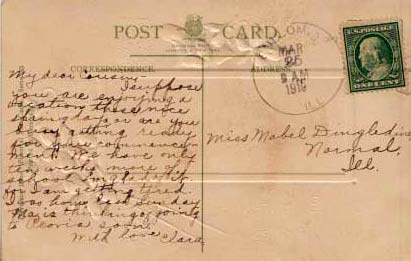 POST CARD.
CORRESPONDENCE
ADDRESS
MAR
25
9 AM
ILL.
U.S. POSTAGE
ONE CENT
My dear Cousin-
I suppose
you are enjoying a
vacation these nice
spring days or are you
busy getting ready
for your commence-
ment. We have only
ten weeks more of
school. I'm glad of it
for I am getting tired
was home last Sunday
May is the
to Peoria soon.
With love Clara
Miss Mabel Dingledine
Normal,
Ill.